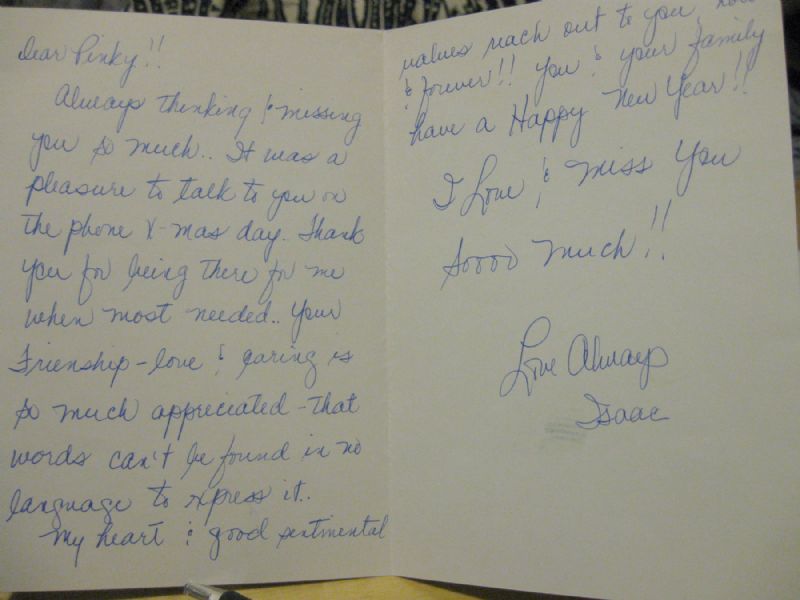 Dear Pinky!!
Always thinking & missing
you so much.. It was a
pleasure to talk to you on
the phone X-mas day. Thank
you for being there for me
when most needed.. Your
Frienship-love & caring is
so much appreciated-that
words can't be found in no
language to xpress it..
My heart & good sentimental
values reach out to you now
& forever!! You & your family
have a Happy New Year!!
I Love & miss You
Soooo much!!
Love Always
Isaac